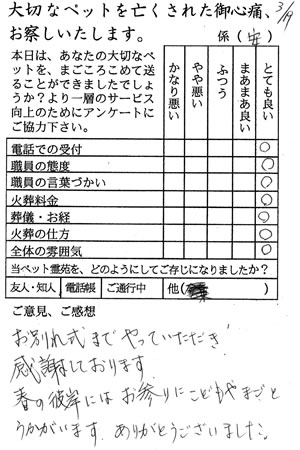 大切なペットを亡くされた御心痛、
お察しいたします。
3/19
係（安）
本日は、あなたの大切なペ
ットを、まごころこめて送
ることができましたでしょ
うか？より一層のサービス
向上のためにアンケートに
ご協力下さい。
かなり悪い
やや悪い
ふつう
まあまあ良い
とても良い
電話での受付 ○
職員の態度 ○
職員の言葉づかい ○
火葬料金 ○
葬儀・お経 ○
火葬の仕方 ○
全体の雰囲気 ○
当ペット霊苑を、どのようにしてご存じになりましたか？
友人・知人 電話帳 ご通行中 他（
ご意見、ご感想
お別れ式までやっていただき
感謝しております。
春の彼岸にはお参りにこどもやまごと
うかがいます。ありがとうございました。